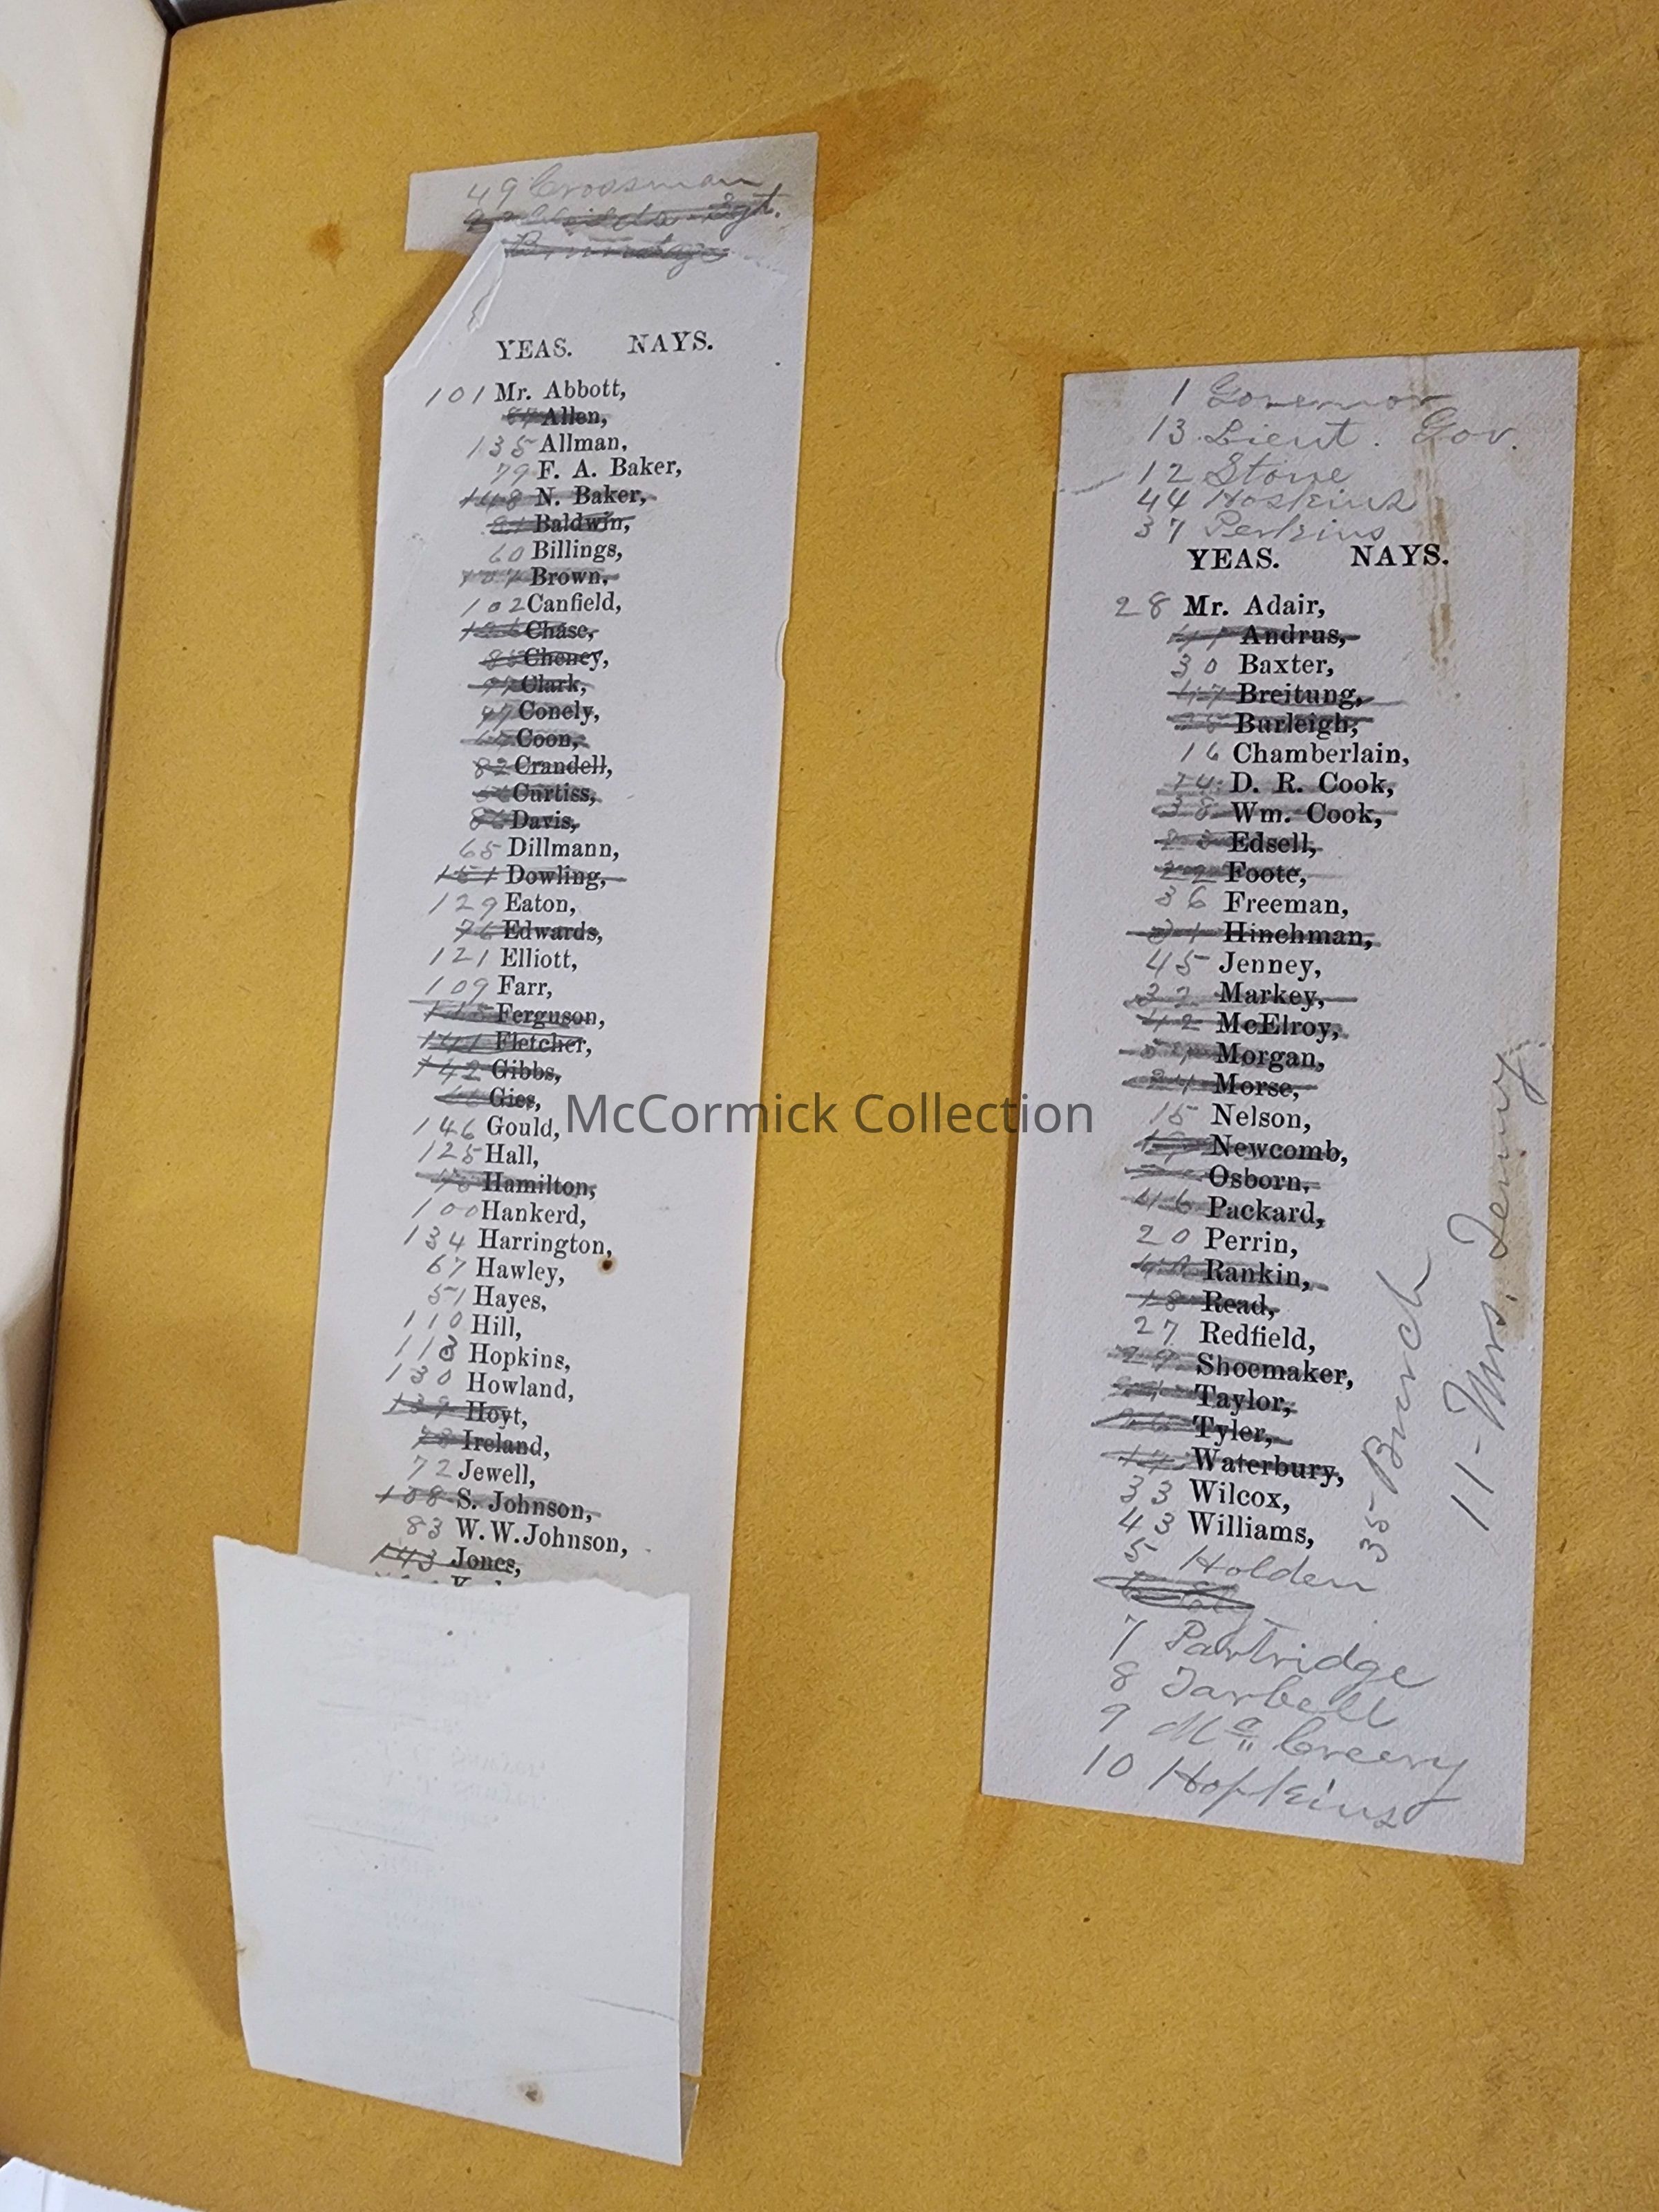 49 Crossman
Sgt.
YEAS. NAYS.
101 Mr. Abbott,
Allen,
135 Allman,
79 F. A. Baker,
148 N. Baker,
Baldwin,
60 Billings,
Brown,
102 Canfield,
Chase,
Cheney,
Clark,
Conely,
Coon,
82 Crandell,
Curtiss,
Davis,
65 Dillmann,
151 Dowling,
129 Eaton,
76 Edwards,
121 Elliott,
109 Farr,
Ferguson,
141 Fletcher,
142 Gibbs,
Gies,
146 Gould,
125 Hall,
Hamilton,
100 Hankerd,
134 Harrington,
67 Hawley,
51 Hayes,
110 Hill,
113 Hopkins,
130 Howland,
139 Hoyt,
Ireland,
72 Jewell,
108 S. Johnson,
83 W. W. Johnson,
143 Jones,
1 Governor
13 Lieut. Gov.
12 Stone
44 Hoskins
37 Perkins
YEAS. NAYS.
28 Mr. Adair,
Andrus,
30 Baxter,
47 Breitung,
Burleigh,
16 Chamberlain,
D. R. Cook,
38 Wm. Cook,
Edsell,
22 Foote,
36 Freeman,
Hinchman,
45 Jenney,
32 Markey,
42 McElroy,
Morgan,
Morse,
15 Nelson,
Newcomb,
Osborn,
46 Packard,
20 Perrin,
Rankin,
18 Read,
27 Redfield,
29 Shoemaker,
Taylor,
Tyler,
Waterbury,
33 Wilcox,
43 Williams,
5 Holden
7 Partridge
8 Tarbell
9 Mc Creery
10 Hopkins
35 Burch
11 - Mrs.
McCormick Collection